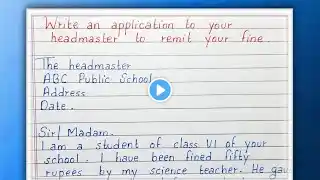 Write an application to your
headmaster to remit your fine.
The headmaster
ABC Public School
Address
Date.
Sir/ Madam.
I am a student of class VI of your
school. I have been fined fifty
rupees by my science teacher. He gav